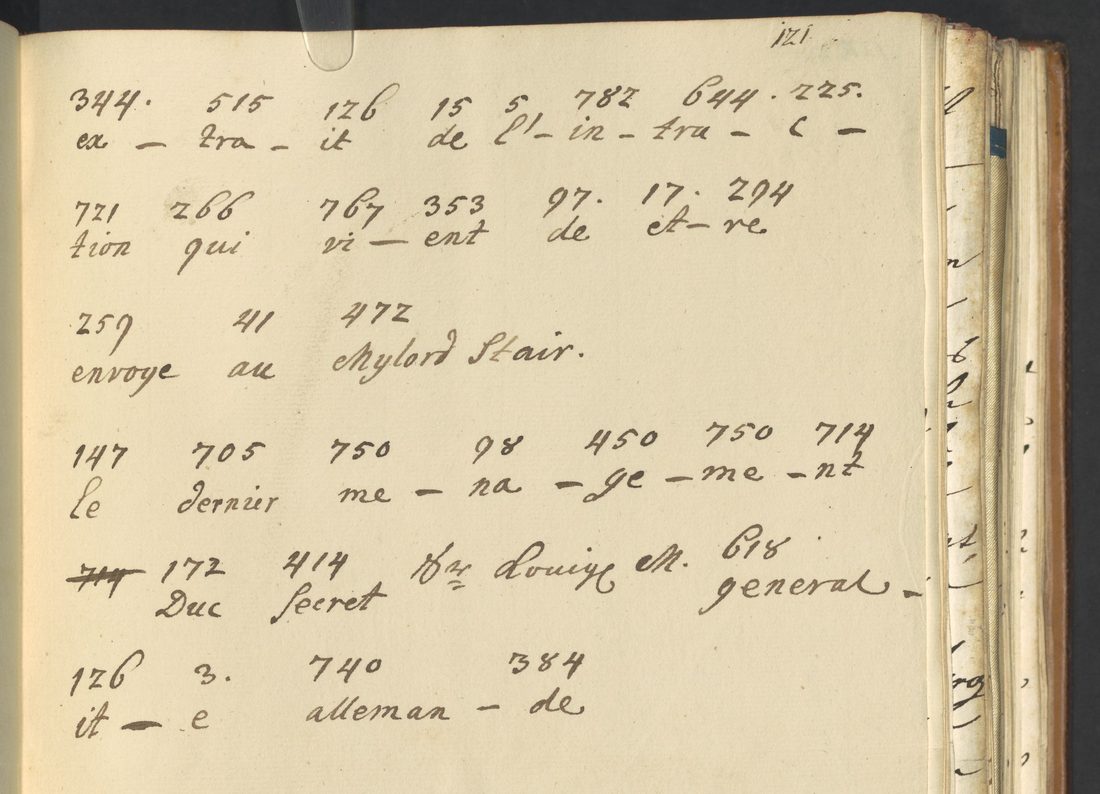 121
344. 515 126 15 5 782 644. 225.
ex – tra – it de l'– in – tru – c –
721 266 767 353 97. 17. 294
tion qui vi – ent de et – re
259 41 472
envoye au Mylord Stair.
147 705 750 98 450 750 714
le dernier me – na – ge – me – nt
714 172 414 M. 618
Duc secret general –
126 3. 740 384
it – e alleman – de